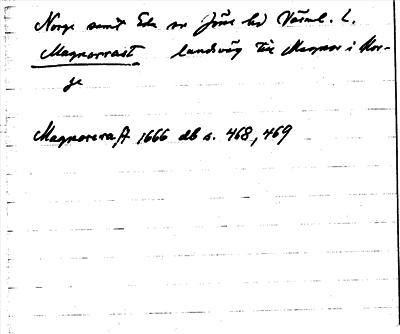 Norge samt Eda sn Jösse hd Värml. l.
Magnorrast landsväg till Magnor i Nor-
ge
Magnorerast 1666 db s. 468, 469